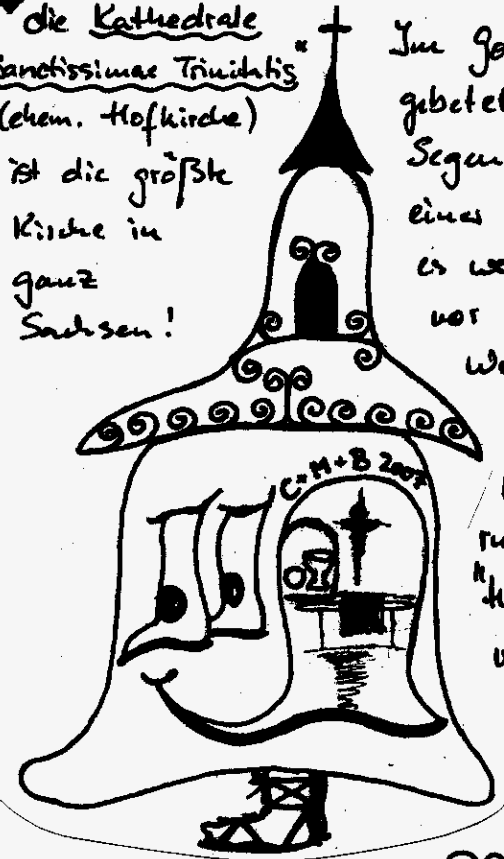 die Kathedrale
Sanctissimae Trinitatis"
(ehem. Hofkirche)
ist die größte
Kirche in
ganz
Sachsen!
Im
gebetet
Segen
eines
es
vor
C+M+B 2007